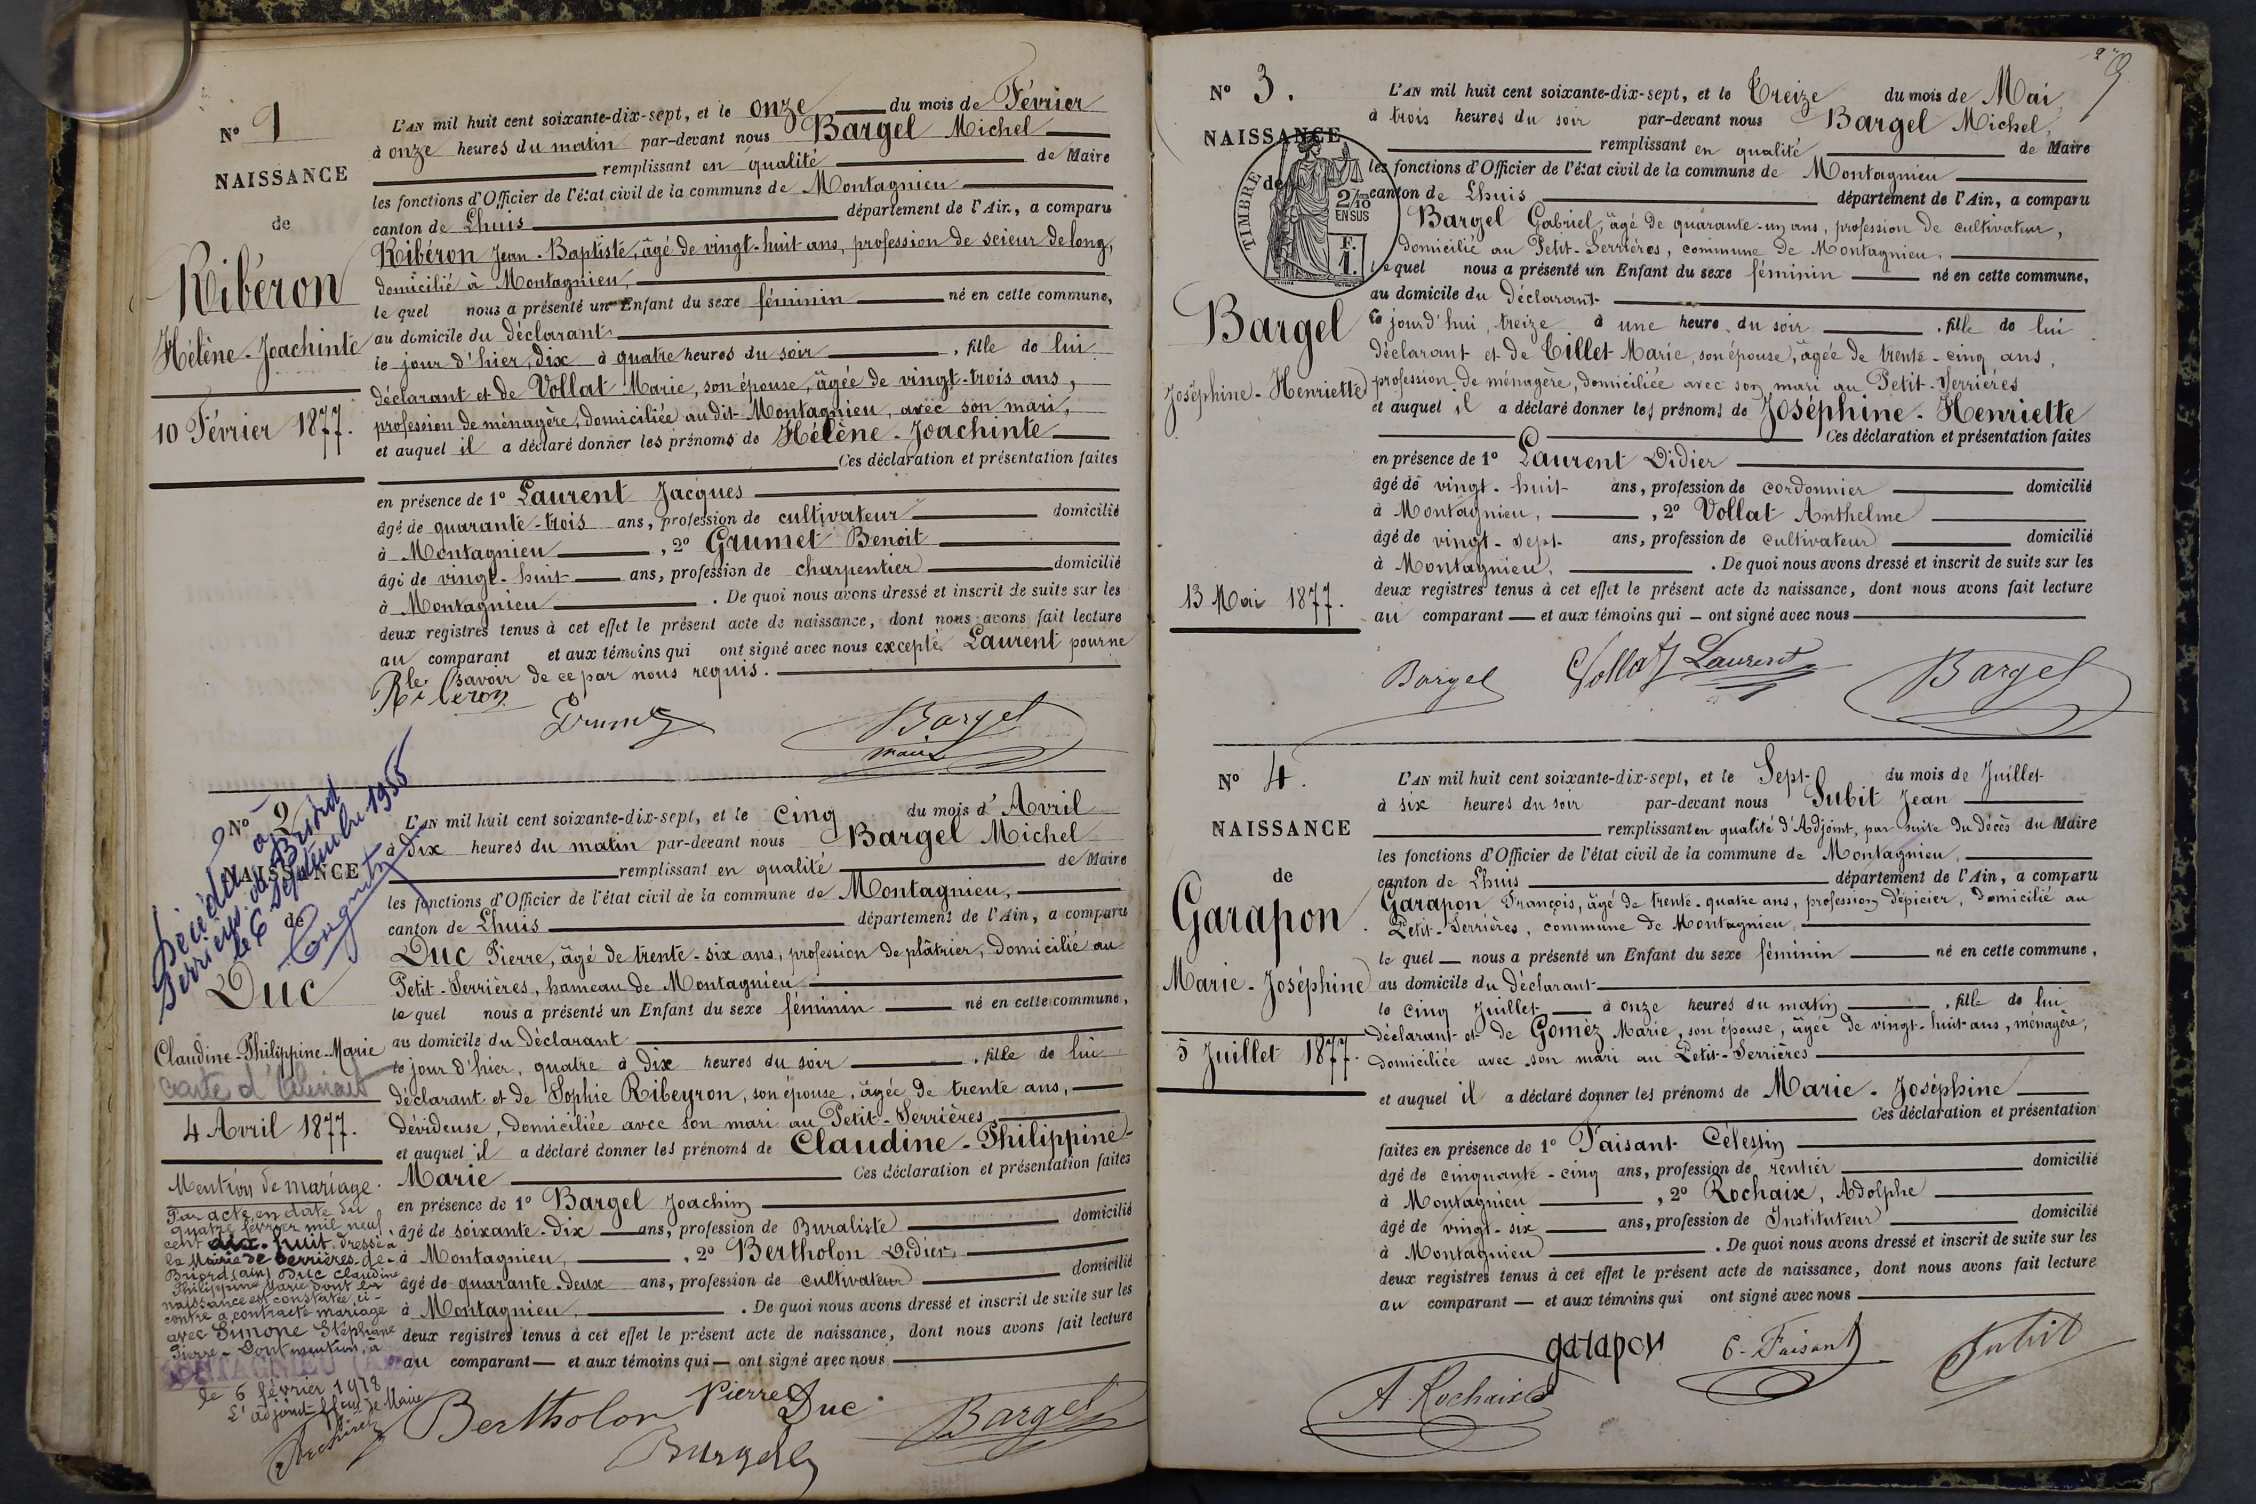 Nº 1
NAISSANCE
de
Ribéron
Hélène-Joachinte
10 Février 1877.
L'AN mil huit cent soixante-dix-sept, et le onze du mois de Février
à onze heures du matin par-devant nous Bargel Michel
remplissant en qualité de Maire
les fonctions d'Officier de l'état civil de la commune de Montagnieu
canton de Lhuis département de l'Ain, a comparu
Ribéron Jean-Baptiste, âgé de vingt-huit ans, profession de scieur de long,
domicilié à Montagnieu,
le quel nous a présenté un Enfant du sexe féminin né en cette commune,
au domicile du déclarant
le jour d'hier, dix à quatre heures du soir, fille de lui
déclarant et de Vollat Marie, son épouse, âgée de vingt-trois ans,
profession de ménagère, domiciliée au dit Montagnieu, avec son mari,
et auquel il a déclaré donner les prénoms de Hélène-Joachinte
Ces déclaration et présentation faites
en présence de 1º Laurent Jacques
âgé de quarante-trois ans, profession de cultivateur domicilié
à Montagnieu, 2º Grumet Benoit
âgé de vingt-huit ans, profession de charpentier domicilié
à Montagnieu. De quoi nous avons dressé et inscrit de suite sur les
deux registres tenus à cet effet le présent acte de naissance, dont nous avons fait lecture
au comparant et aux témoins qui ont signé avec nous excepté Laurent pour ne
le savoir de ce par nous requis.
Riberon
Grumet
Bargel
maire
Nº 2
NAISSANCE
de
Duc
Claudine-Philippine-Marie
4 Avril 1877.
Décédée à
Serrières-de-Briord
le 6 Septembre 1955
Mention de mariage.
Par acte en date du
quatre février mil neuf
cent dix-huit dressé à
la Mairie de Serrières-de-
Briord (Ain) Duc Claudine
Philippine Marie dont la
naissance est constatée ci-
contre a contracté mariage
avec Simone Stéphane
Pierre - Dont mention, à
MONTAGNIEU
le 6 février 1918
L'an mil huit cent soixante-dix-sept, et le cinq du mois d'Avril
à dix heures du matin par-devant nous Bargel Michel
remplissant en qualité de Maire
les fonctions d'Officier de l'état civil de la commune de Montagnieu,
canton de Lhuis département de l'Ain, a comparu
Duc Pierre, âgé de trente-six ans, profession de plâtrier, domicilié au
Petit-Serrières, hameau de Montagnieu
le quel nous a présenté un Enfant du sexe féminin né en cette commune,
au domicile du déclarant
le jour d'hier, quatre à dix heures du soir, fille de lui
déclarant et de Sophie Ribeyron, son épouse, âgée de trente ans,
dévideuse, domiciliée avec son mari au Petit-Serrières
et auquel il a déclaré donner les prénoms de Claudine-Philippine-
Marie Ces déclaration et présentation faites
en présence de 1º Bargel Joachim
âgé de soixante-dix ans, profession de Buraliste domicilié
à Montagnieu, 2º Bertholon Didier,
âgé de quarante-deux ans, profession de cultivateur domicilié
à Montagnieu. De quoi nous avons dressé et inscrit de suite sur les
deux registres tenus à cet effet le présent acte de naissance, dont nous avons fait lecture
au comparant et aux témoins qui ont signé avec nous
Bertholon Pierre Duc Bargel
Bargel
Nº 3.
NAISSANCE
de
TIMBRE
2/10
EN SUS
F.
1.
Bargel
Joséphine-Henriette
13 Mai 1877.
L'AN mil huit cent soixante-dix-sept, et le Treize du mois de Mai
à trois heures du soir par-devant nous Bargel Michel,
remplissant en qualité de Maire
les fonctions d'Officier de l'état civil de la commune de Montagnieu
canton de Lhuis département de l'Ain, a comparu
Bargel Gabriel, âgé de quarante-un ans, profession de cultivateur,
domicilié au Petit-Serrières, commune de Montagnieu.
le quel nous a présenté un Enfant du sexe féminin né en cette commune,
au domicile du déclarant
ce jourd'hui, treize à une heure du soir, fille de lui
déclarant et de Tillet Marie, son épouse, âgée de trente-cinq ans,
profession de ménagère, domiciliée avec son mari au Petit-Serrières
et auquel il a déclaré donner les prénoms de Joséphine-Henriette
Ces déclaration et présentation faites
en présence de 1º Laurent Didier
âgé de vingt-huit ans, profession de cordonnier domicilié
à Montagnieu, 2º Vollat Anthelme
âgé de vingt-sept ans, profession de cultivateur domicilié
à Montagnieu. De quoi nous avons dressé et inscrit de suite sur les
deux registres tenus à cet effet le présent acte de naissance, dont nous avons fait lecture
au comparant et aux témoins qui ont signé avec nous
Bargel Vollat Laurent Bargel
Nº 4.
NAISSANCE
de
Garapon
Marie-Joséphine
5 Juillet 1877.
L'AN mil huit cent soixante-dix-sept, et le Sept du mois de Juillet
à six heures du soir par-devant nous Subit Jean
remplissant en qualité d'Adjoint, par suite du décès du Maire
les fonctions d'Officier de l'état civil de la commune de Montagnieu,
canton de Lhuis département de l'Ain, a comparu
Garapon François, âgé de trente-quatre ans, profession d'épicier, domicilié au
Petit-Serrières, commune de Montagnieu,
le quel nous a présenté un Enfant du sexe féminin né en cette commune,
au domicile du déclarant
le cinq Juillet à onze heures du matin, fille de lui
déclarant et de Gomèz Marie, son épouse, âgée de vingt-huit ans, ménagère,
domiciliée avec son mari au Petit-Serrières
et auquel il a déclaré donner les prénoms de Marie-Joséphine
Ces déclaration et présentation
faites en présence de 1º Faisant Célestin
âgé de cinquante-cinq ans, profession de rentier domicilié
à Montagnieu, 2º Rochaix, Adolphe
âgé de vingt-six ans, profession de Instituteur domicilié
à Montagnieu. De quoi nous avons dressé et inscrit de suite sur les
deux registres tenus à cet effet le présent acte de naissance, dont nous avons fait lecture
au comparant et aux témoins qui ont signé avec nous
garapon C. Faisant Subit
A. Rochaix